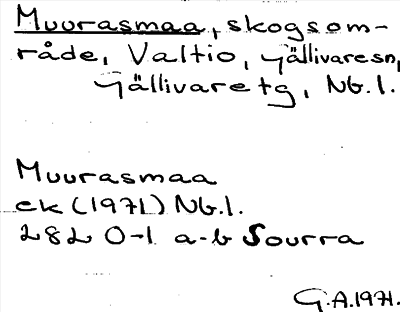 Muurasmaa, skogsom-
råde, Valtio, Gällivaresn,
Gällivaretg, Nb.l.
Muurasmaa
ek (1971) Nb.l.
282 0-1 a-b Sourra
G.A.1971.